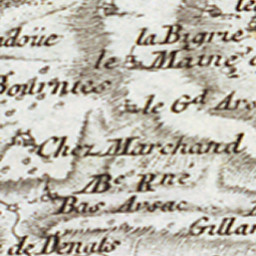 la Bigrie
le Maine
Bournies
le Gd Ars
Chez Marchand
Be Rné
Bas Arsac
Gillar
de Denats